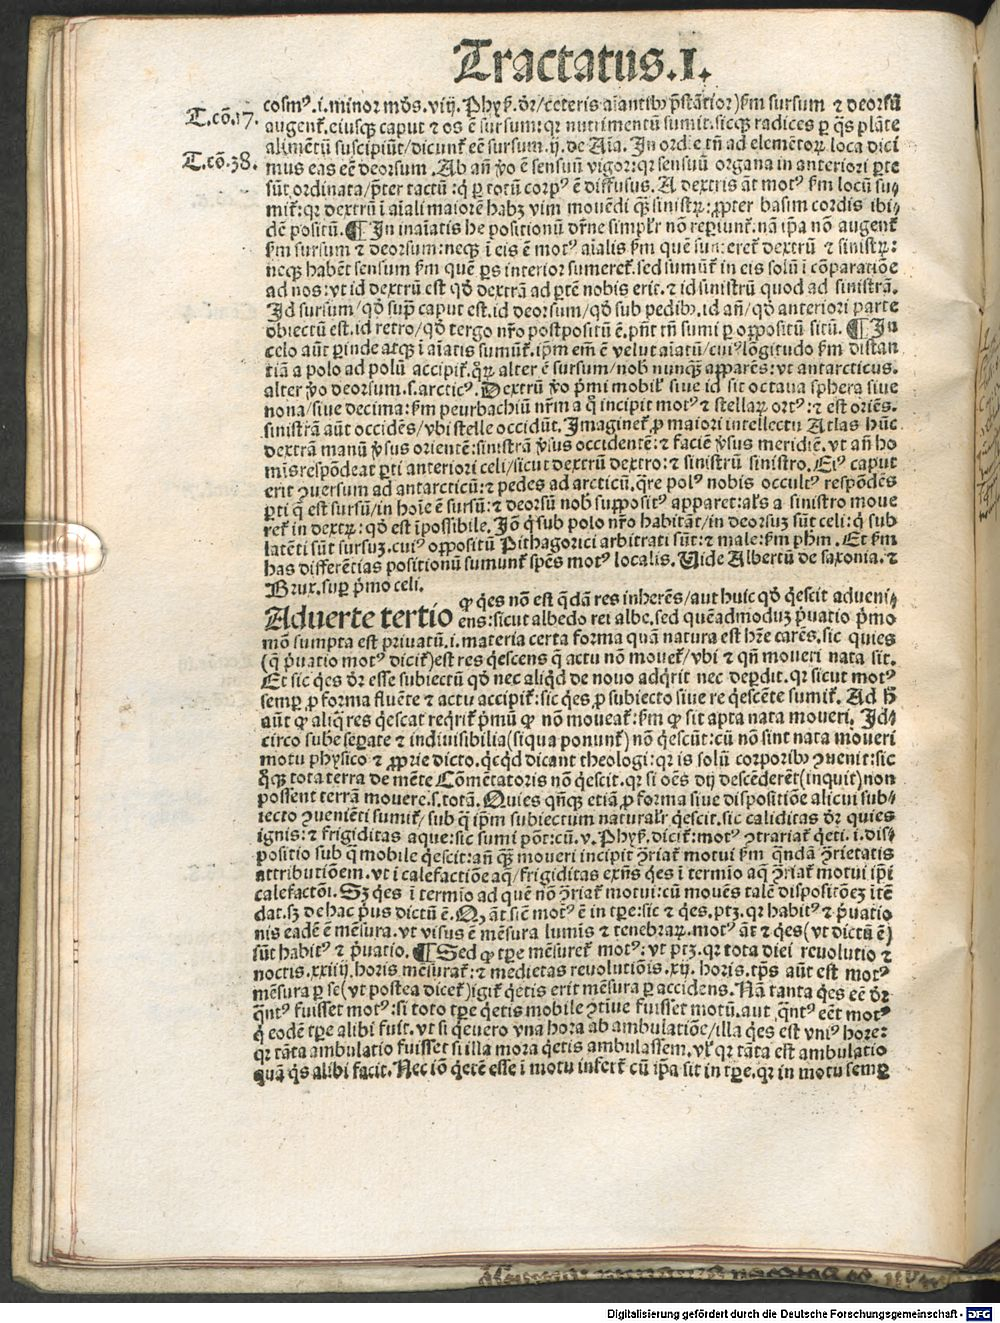 Tractatus.I.
cosmꝰ.i.minor mōs.viij.Phyſ. ōr/ceteris aīantibꝫ p̄stātior)ẜm sursum ⁊ deorsū
T.cō.17.
augent᷒.eiusqꝫ caput ⁊ os ē sursum:qꝛ nutrimentū sumit.sicqꝫ radices ꝑ q̄s plāte
alimētū suscipiūt/dicunt᷒ eē sursum.ij.de Aīa. In ordīe tn̄ ad elemētoꝝ loca dici
T.cō.38.
mus eas eē deorsum. Ab an̄ ꝟo ē sensuū vigor:qꝛ sensuū organa in anteriori ꝑte
sūt ordinata/p̄ter tactū:q̇ ꝑ totū corpꝰ ē diffusus. A dextris āt motꝰ ẜm locū su/
mit᷒:qꝛ dextrū ī aīali maiorē habꝫ vim mouēdi qꝫ̄ sinistꝝ:ꝓpter basim cordis ibi/
dē positū. ¶ In inaīatis he positionū dr̄ne simplr̄ nō reꝑiunt᷒.nā ip̄a nō augent᷒
ẜm sursum ⁊ deorsum:neqꝫ ī eis ē motꝰ aīalis ẜm quē sumeret᷒ dextrū ⁊ sinistꝝ:
neqꝫ habēt sensum ẜm quē ꝑs interior sumeret᷒.sed sumūt᷒ in eis solū ī cōparatiōe
ad nos:vt id dextrū est qd̓ dextrā ad ꝑtē nobis erit.⁊ id sinistrū quod ad sinistrā.
Id sursum/qd̓ supͣ caput est.id deorsum/qd̓ sub pedibꝫ.id an̄/qd̓ anteriori parte
obiectū est.id retro/qd̓ tergo nr̄o postpositū ē.pn̄t tn̄ sumi ꝑ oꝓpositū sitū. ¶ In
celo aūt perinde atqꝫ ī aīatis sumūt᷒.ip̄m em̄ ē velut aīatū/cuiꝰ lōgitudo ẜm distan
tiā a polo ad polū accipit᷒.qͦꝝ alter ē sursum/nob̓ nunqꝫ̄ apparēs:vt antarcticus.
alter ꝟo deorsum.s.arcticꝰ. Dextrū ꝟo pͥmi mobil᷒ siue id sit octaua sphera siue
nona/siue decima:ẜm peurbachiū nr̄m a q̇ incipit motꝰ ⁊ stellaꝝ ortꝰ:⁊ est oriēs.
sinistrā aūt occidēs/vbi stelle occidūt. Imaginet᷒ ꝓ maiori intellectu Atlas hūc
dextrā manū ꝟsus orientē:sinistrā ꝟsus occidentē:⁊ faciē ꝟsus meridiē.vt an̄ ho
mīs respōdeat ꝑti anteriori celi/sicut dextrū dextro:⁊ sinistrū sinistro. Eiꝰ caput
erit ꝯuersum ad antarcticū:⁊ pedes ad arcticū.q̄re polꝰ nobis occultꝰ respōdēs
ꝑti q̇ est sursū/in hoīe ē sursū:⁊ deorsū nob̓ suppositꝰ apparet:al̓s a sinistro moue
ret᷒ in dextꝝ:qd̓ est īpossibile. Iō q̇ sub polo nr̄o habitāt/in deorsuꝫ sūt celi:q̇ sub
latēti sūt sursuꝫ.cuiꝰ oꝓpositū Pithagorici arbitrati sūt:⁊ male:ẜm phm̄. Et ẜm
has differētias positionū sumunt᷒ spēs motꝰ localis. Uide Albertū de saxonia.⁊
Brux.suꝑ pͥmo celi.
Aduerte tertio ꝙ q̇es nō est q̄dā res inherēs/aut huic qd̓ q̇escit adueni/
ens:sicut albedo rei albe.sed quēadmoduꝫ pͥuatio pͥmo
mō sumpta est priuatū.i.materia certa forma quā natura est hr̄e carēs.sic quies
(q̄ pͥuatio motꝰ dicit᷒)est res q̇escens q̄ actu nō mouet᷒/vbi ⁊ qn̄ moueri nata sit.
Et sic q̇es ōr esse subiectū qd̓ nec aliqd̓ de nouo adqͥrit nec deꝑdit.qꝛ sicut motꝰ
semꝑ ꝓ forma fluēte ⁊ actu accipit᷒:sic q̇es ꝓ subiecto siue re q̇escēte sumit᷒. Ad ħ
aūt ꝙ aliq̄ res q̇escat reqͥrit᷒ pͥmū ꝙ nō moueat᷒:ẜm ꝙ sit apta nata moueri. Id/
circo sube seꝑate ⁊ indiuisibilia(siqua ponunt᷒)nō q̇escūt:cū nō sint nata moueri
motu physico ⁊ ꝓprie dicto.qͥcqͥd dicant theologi:qꝛ is solū corporibꝫ ꝯuenit:sic
qͦqꝫ tota terra de mēte Cōmētatoris nō q̇escit.qꝛ si oēs dij descēderēt(inquit)non
possent terrā mouere.s.totā. Quies qn̄qꝫ etiā ꝓ forma siue dispositiōe alicui sub/
iecto ꝯueniēti sumit᷒/sub q̄ ip̄m subiectum natural̓r q̇escit.sic caliditas ōr quies
ignis:⁊ frigiditas aque:sic sumi pōt:cū.v. Phyſ. dicit᷒:motꝰ ꝯtrariat᷒ q̇eti.i.dis/
positio sub q̄ mobile q̇escit:an̄ qꝫ̄ moueri incipit ꝯ̄riat᷒ motui ẜm qn̄dā ꝯ̄rietatis
attributiōem.vt ī calefactiōe aq̄/frigiditas exn̄s q̇es ī termīo aq̄ ꝯ̄riat᷒ motui ip̄i
calefactōi. Sꝫ q̇es ī termīo ad quē nō ꝯ̄riat᷒ motui:cū mouēs talē dispositōeꝫ ītē
dat.sꝫ de hac pͥus dictū ē. Qꝫ āt sic̄ motꝰ ē in tꝑe:sic ⁊ q̇es.ptꝫ.qꝛ habitꝰ ⁊ pͥuatio
nis eadē ē mēsura.vt visus ē mēsura lumīs ⁊ tenebraꝝ.motꝰ āt ⁊ q̇es(vt dictū ē)
sūt habitꝰ ⁊ pͥuatio. ¶ Sed ꝙ tꝑe mēsuret᷒ motꝰ:vt ptꝫ.qꝛ tota diei reuolutio ⁊
noctis.xxiiij.horis mēsurat᷒:⁊ medietas reuolutiōis.xij. horis.tp̄s aūt est motꝰ
mēsura ꝑ se(vt postea dicet᷒)igit᷒ q̇etis erit mēsura ꝑ accidens. Nā tanta q̇es eē ōr
qͣntꝰ fuisset motꝰ:si toto tꝑe q̇etis mobile ꝯtīue fuisset motū.aut qͣntꝰ eēt motꝰ
q̇ eodē tꝑe alibi fuit.vt si q̇euero vna hora ab ambulatiōe/illa q̇es est vniꝰ hore:
qꝛ tāta ambulatio fuisset si illa mora q̇etis ambulassem.vl̓ qꝛ tāta est ambulatio
quā q̇s alibi facit. Nec iō q̇etē esse ī motu infert᷒ cū ip̄a sit in tꝑe.qꝛ in motu semꝑ
Digitalisierung gefördert durch die Deutsche Forschungsgemeinschaft - DFG